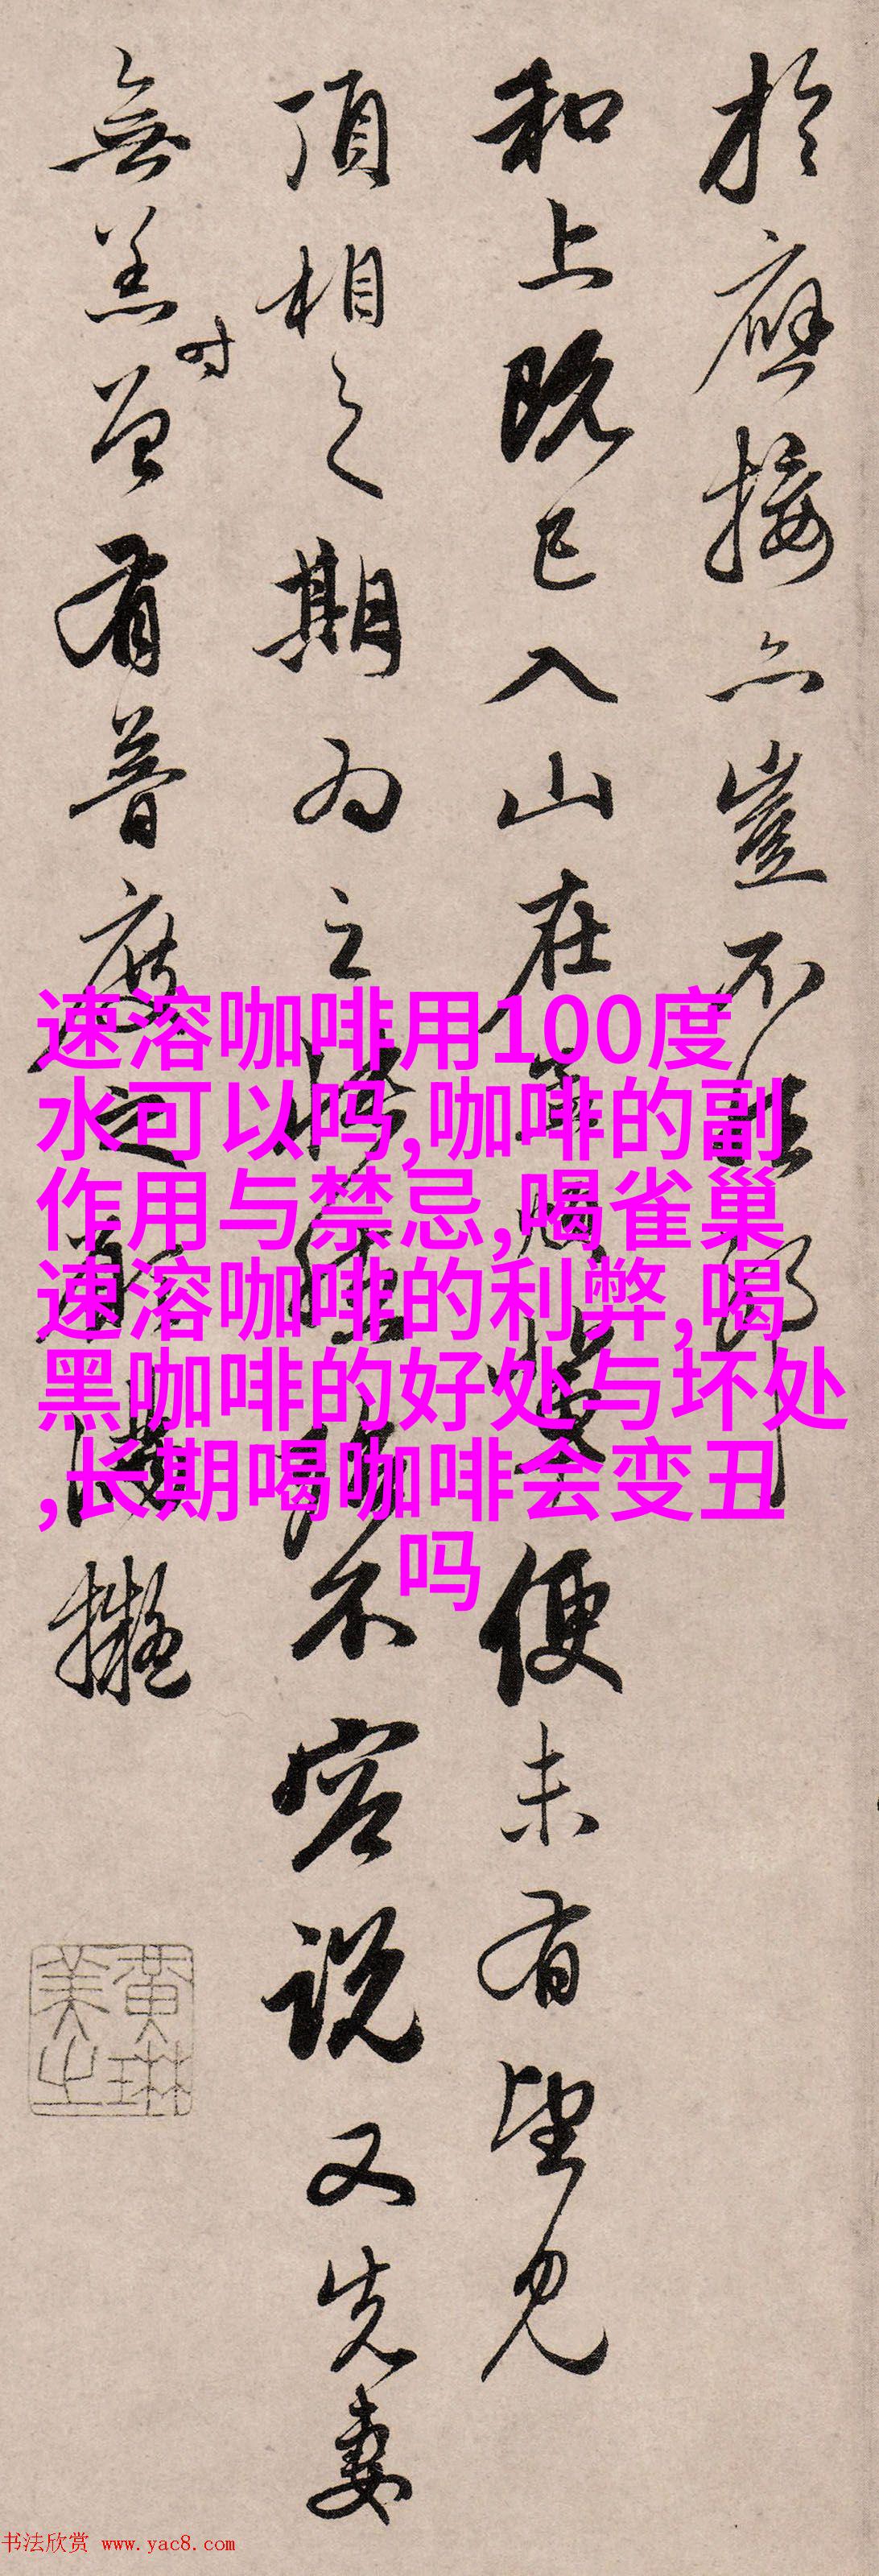 於應接亦豈不
和上既已入山在
便未有望見
頂相之期為之
不容說又先妻
無恙時曾有普度之
擬
速溶咖啡用100度
水可以吗,咖啡的副
作用与禁忌,喝雀巢
速溶咖啡的利弊,喝
黑咖啡的好处与坏处
,长期喝咖啡会变丑
吗
黃琳美之
书法欣赏 www.yac8.com